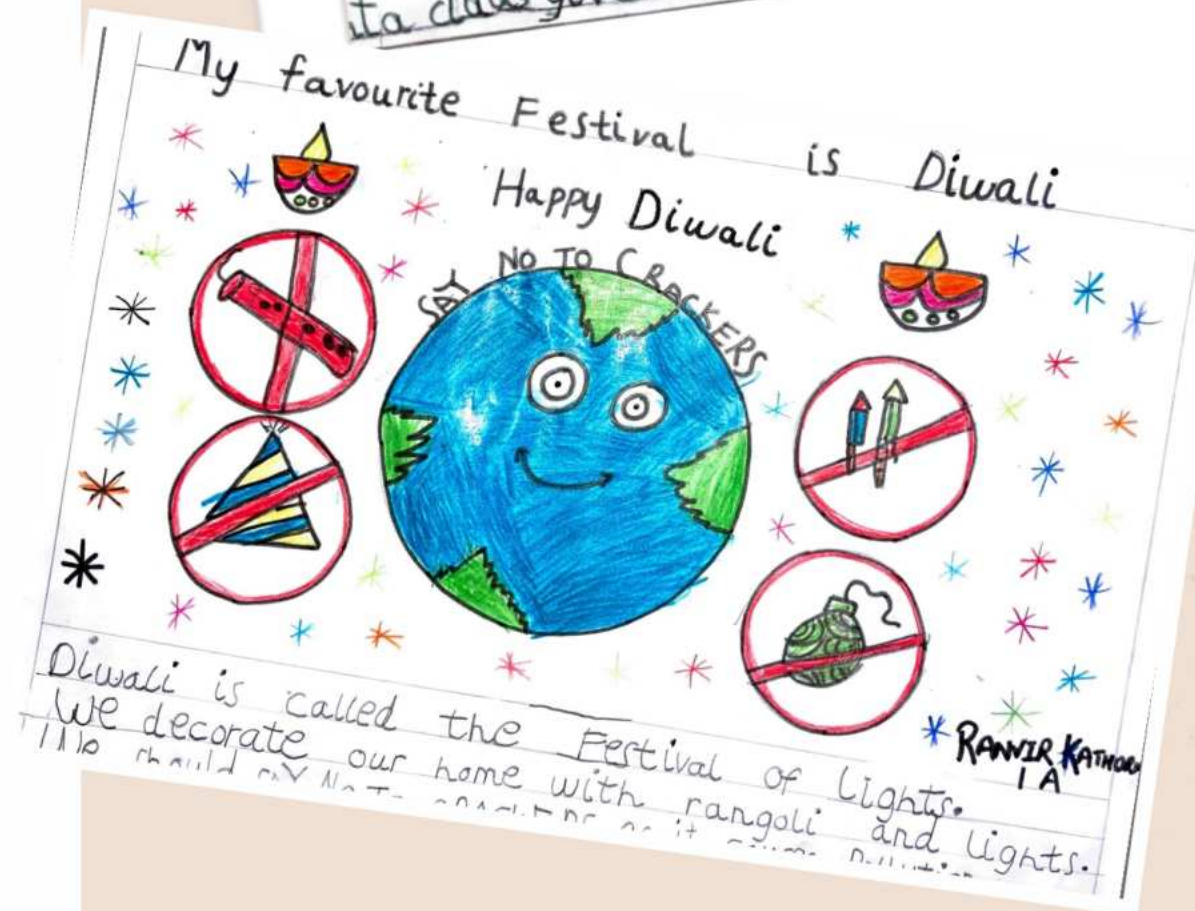 ta claus
My favourite Festival is Diwali
Happy Diwali
SAY NO TO CRACKERS
RANVIR
1A
Diwali is called the Festival of lights.
We decorate our home with rangoli and lights.
We should say No To crackers as it